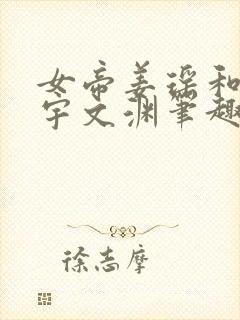 女帝姜瑶和
宇文渊笔趣
徐志摩